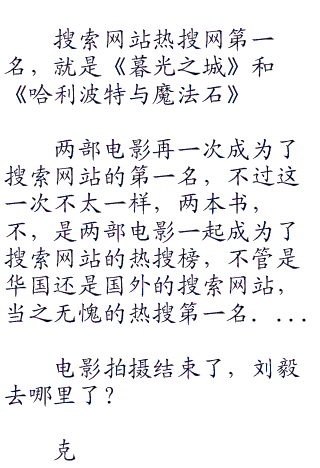 搜索网站热搜网第一
名，就是《暮光之城》和
《哈利波特与魔法石》
两部电影再一次成为了
搜索网站的第一名，不过这
一次不太一样，两本书，
不，是两部电影一起成为了
搜索网站的热搜榜，不管是
华国还是国外的搜索网站，
当之无愧的热搜第一名．．．．
电影拍摄结束了，刘毅
去哪里了？
克